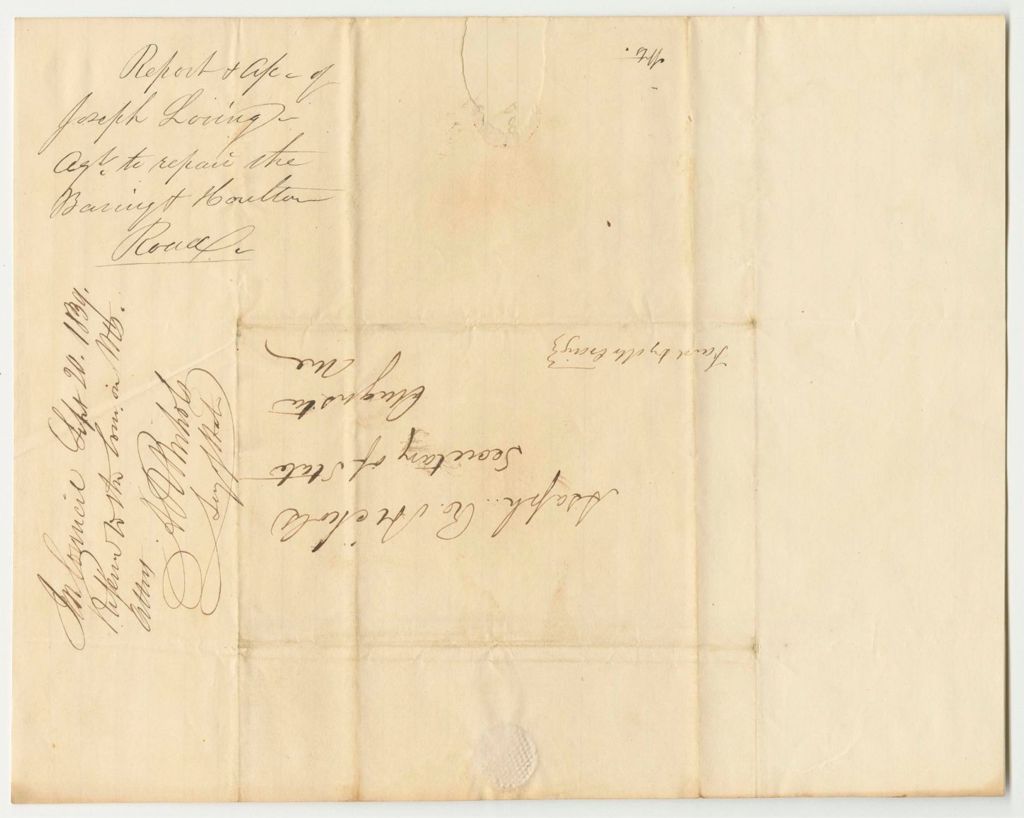 Report & A/c of
Joseph Loring
Agt. to repair the
Baring & Houlton
Road
In Council Sept 20. 1839.
Referred to the Com. on Wts.
Attest
A R Nichols
Secy of State
Asaph R. Nichols
Secretary of State
Augusta
Me